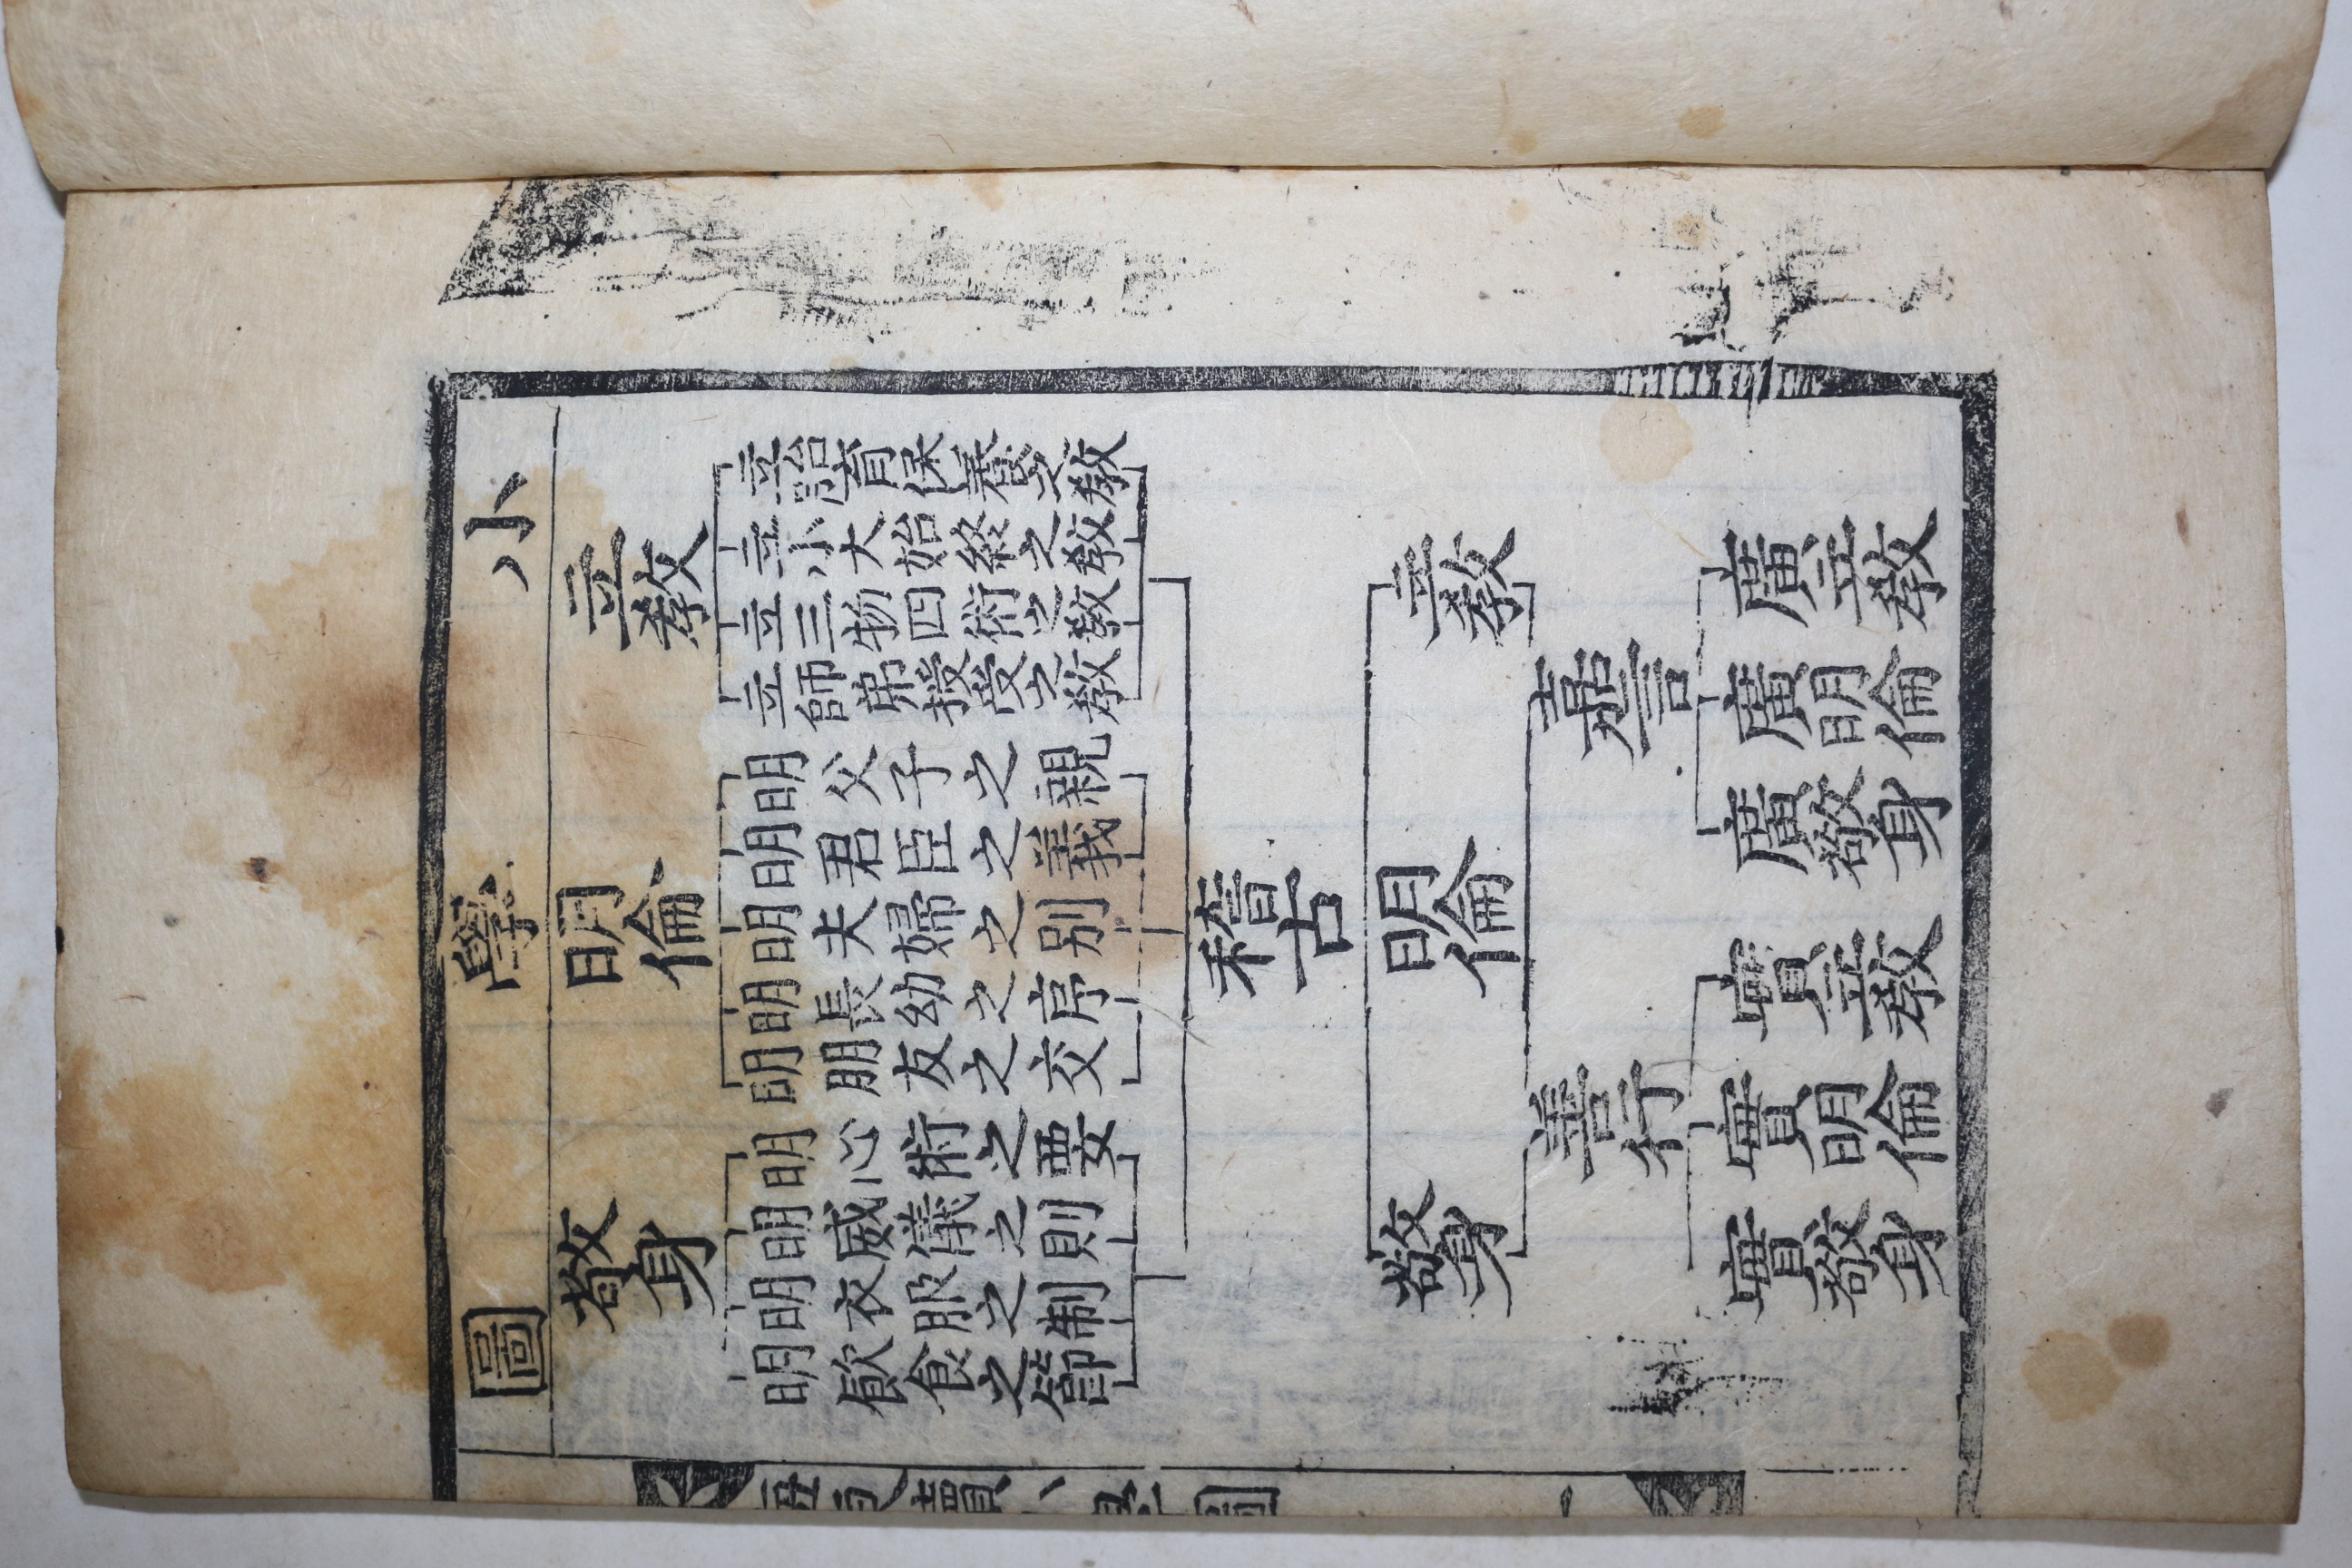 小學圖
立教
立胎育保養之教
立小大始終之教
立三物四術之教
立師弟授受之教
明倫
明父子之親
明君臣之義
明夫婦之别
明長幼之序
明朋友之交
敬身
明心術之要
明威儀之則
明衣服之制
明飮食之節
稽古
立教
明倫
敬身
嘉言
廣立教
廣明倫
廣敬身
善行
實立教
實明倫
實敬身